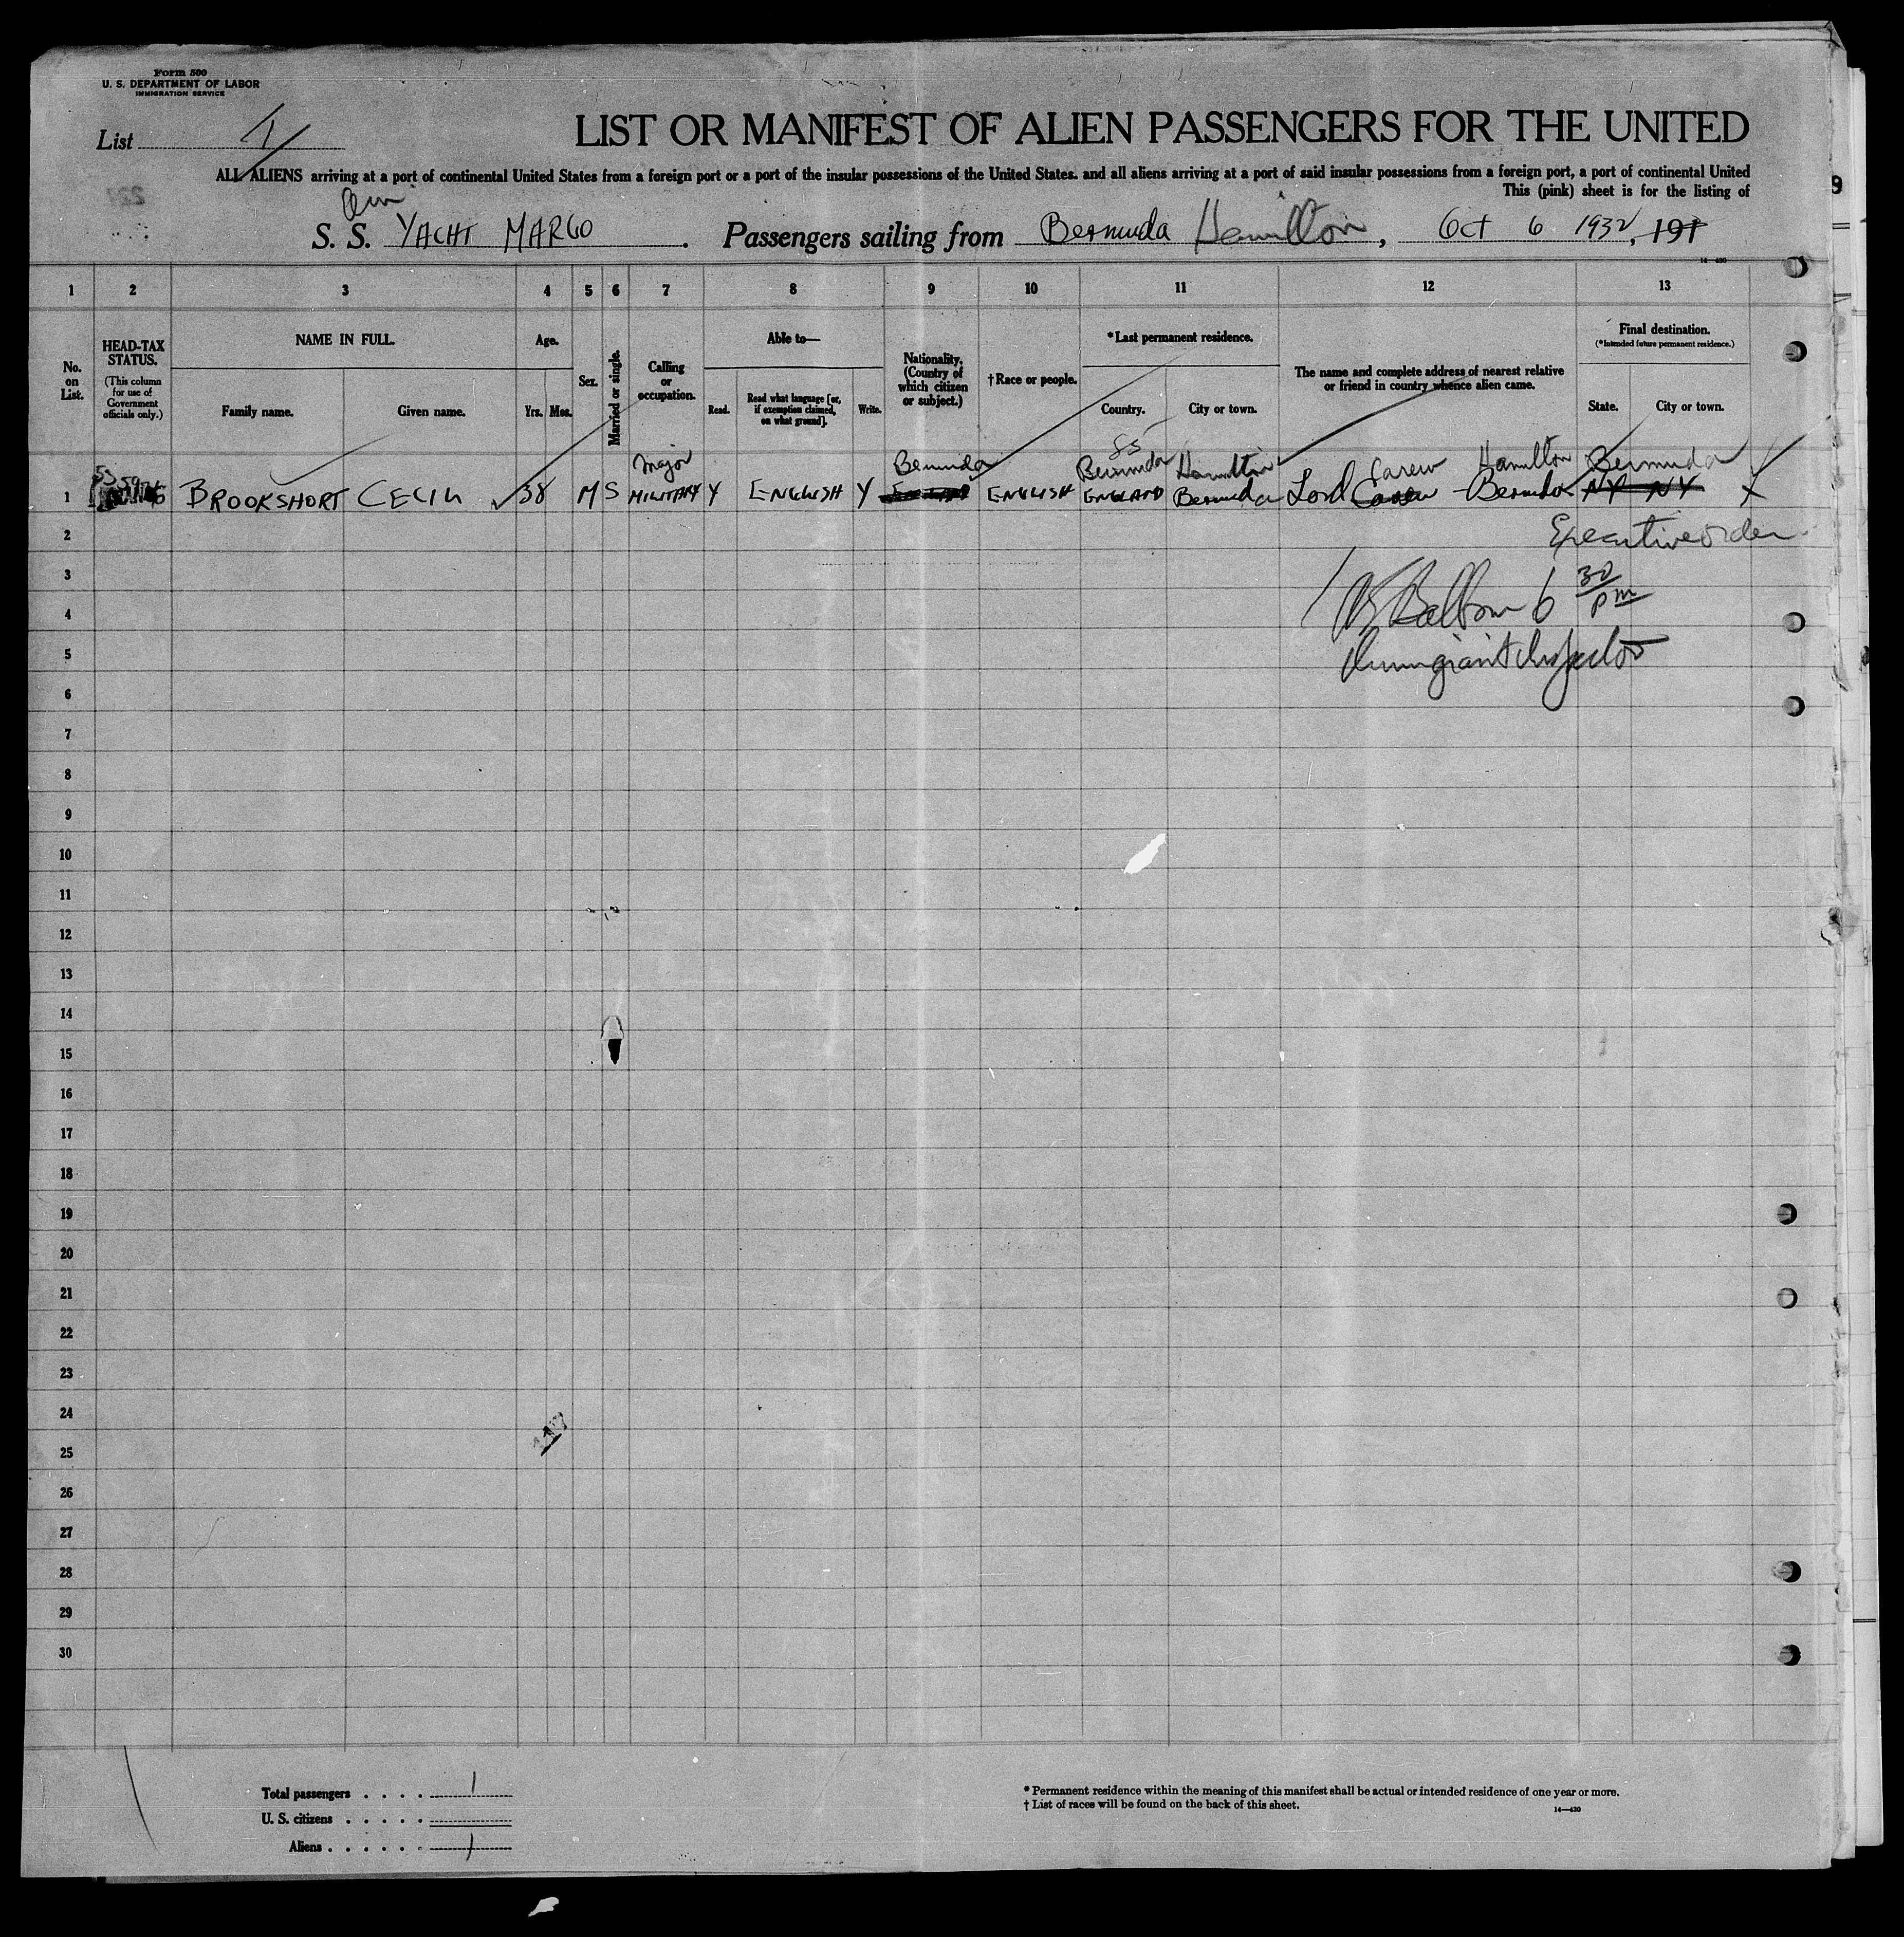 Form 500
U. S. DEPARTMENT OF LABOR
IMMIGRATION SERVICE
List 1
LIST OR MANIFEST OF ALIEN PASSENGERS FOR THE UNITED
ALL ALIENS arriving at a port of continental United States from a foreign port or a port of the insular possessions of the United States. and all aliens arriving at a port of said insular possessions from a foreign port, a port of continental United
This (pink) sheet is for the listing of
S. S. YACHT MARGO . Passengers sailing from Bermuda Hamilton , Oct 6 1932, 191
14—430
1 2 3 4 5 6 7 8 9 10 11 12 13
No. on List.
HEAD-TAX STATUS.
(This column for use of Government officials only.)
NAME IN FULL.
Family name. Given name.
Age.
Yrs. Mos.
Sex.
Married or single.
Calling or occupation.
Able to—
Read. Read what language [or, if exemption claimed, on what ground]. Write.
Nationality. (Country of which citizen or subject.)
†Race or people.
*Last permanent residence.
Country. City or town.
The name and complete address of nearest relative or friend in country whence alien came.
Final destination.
(*Intended future permanent residence.)
State. City or town.
Major Bermuda 85 Bermuda Hamilton Carew Hamilton Bermuda
1 BROOKSHORT CECIL 38 M S MILITARY Y ENGLISH Y ENGLISH ENGLAND Bermuda Lord Bermuda NY NY X
2 Executive order
3 30
4 6 pm
5 Immigrant Inspector
6
7
8
9
10
11
12
13
14
15
16
17
18
19
20
21
22
23
24
25
26
27
28
29
30
Total passengers . . . . 1
U. S. citizens . . . . .
Aliens . . . . . . 1
* Permanent residence within the meaning of this manifest shall be actual or intended residence of one year or more.
† List of races will be found on the back of this sheet.
14—430